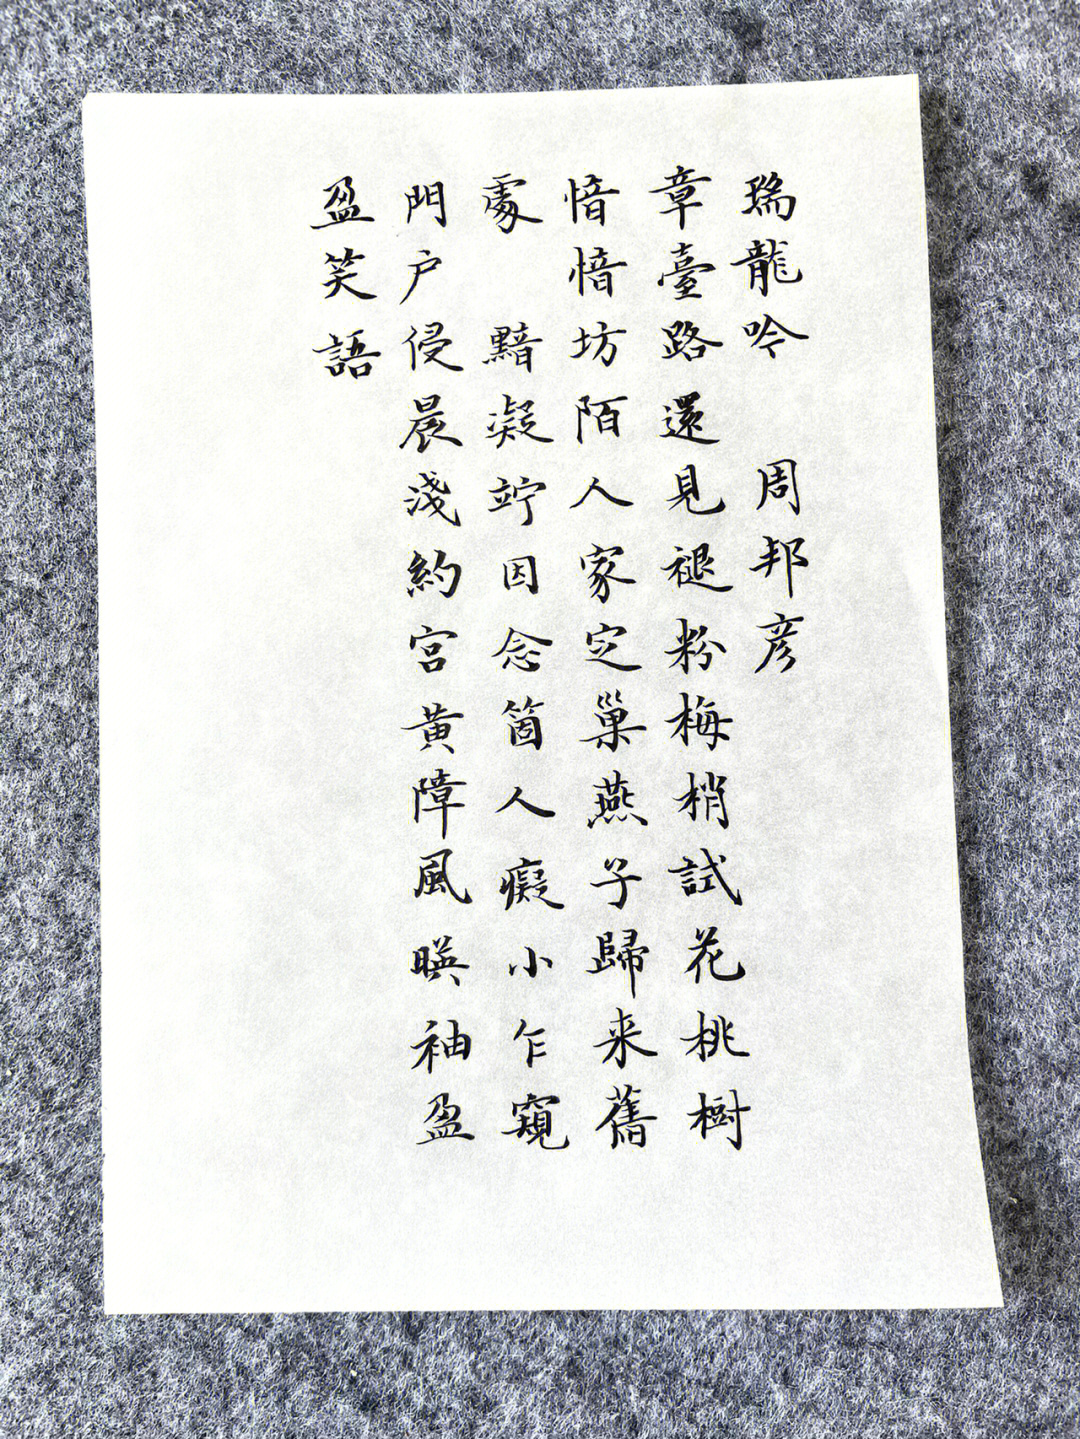 瑞龍吟 周邦彦
章臺路還見褪粉梅梢試花桃樹
愔愔坊陌人家定巢燕子歸来舊
處 黯凝竚因念箇人癡小乍窺
門户侵晨淺約宮黃障風暎袖盈
盈笑語